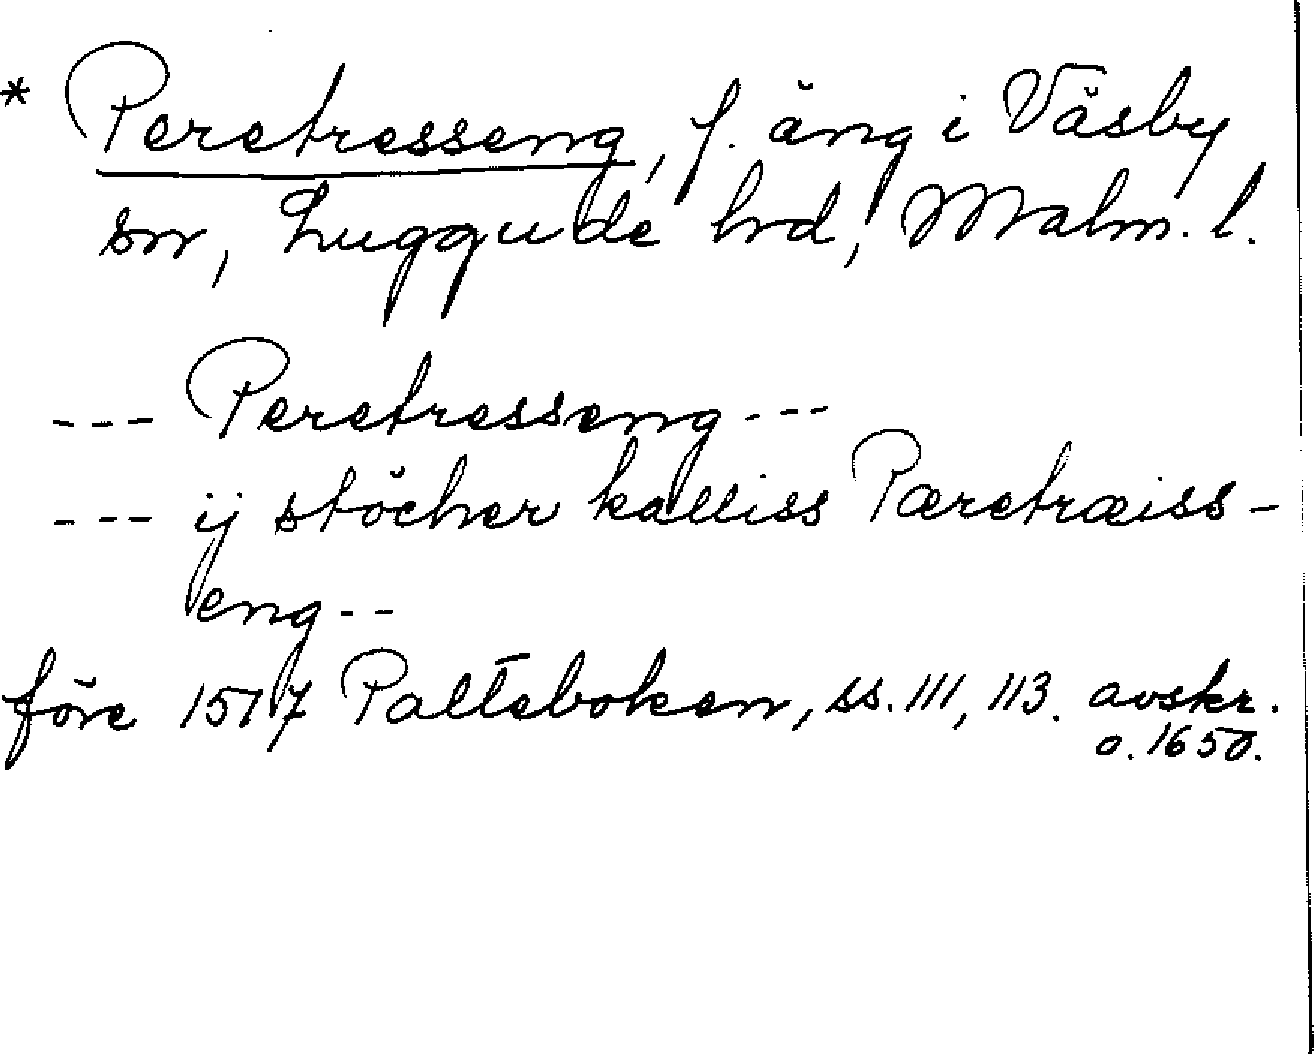 * Peretresseng, f. äng i Väsby
sn, Luggude hrd, Malm. l.
--- Peretresseng ---
--- ij stöcher kalliss Pæretræiss-
eng --
före 1517 Palteboken, ss. 111, 113. avskr.
o. 1650.